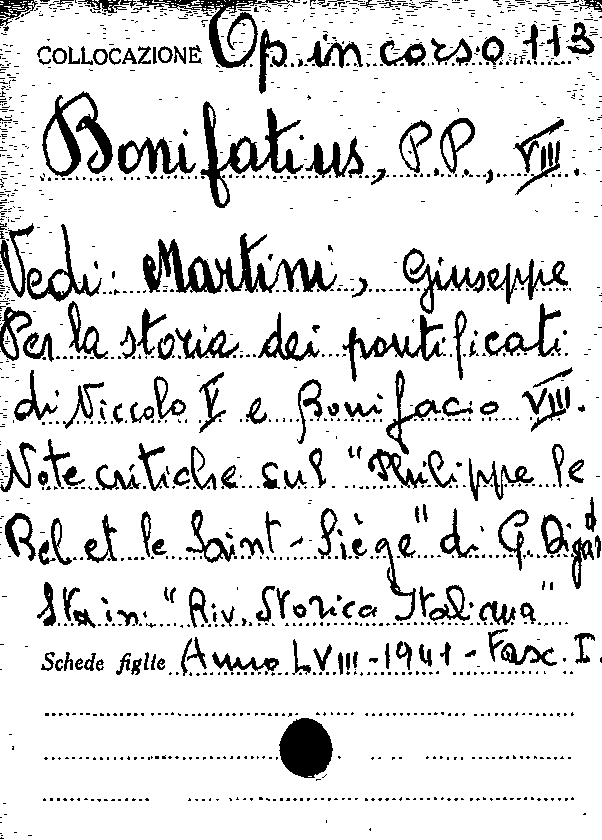 COLLOCAZIONE Op. in corso 113
Bonifatius, P.P., VIII.
Vedi: Martini, Giuseppe
Per la storia dei pontificati
di Niccolo V e Bonifacio VIII.
Note critiche sul "Philippe le
Bel et le Saint-Siège" di G. Digard
Sta in: "Riv. Storica Italiana"
Schede figlie Anno LVIII - 1941 - Fasc. I.